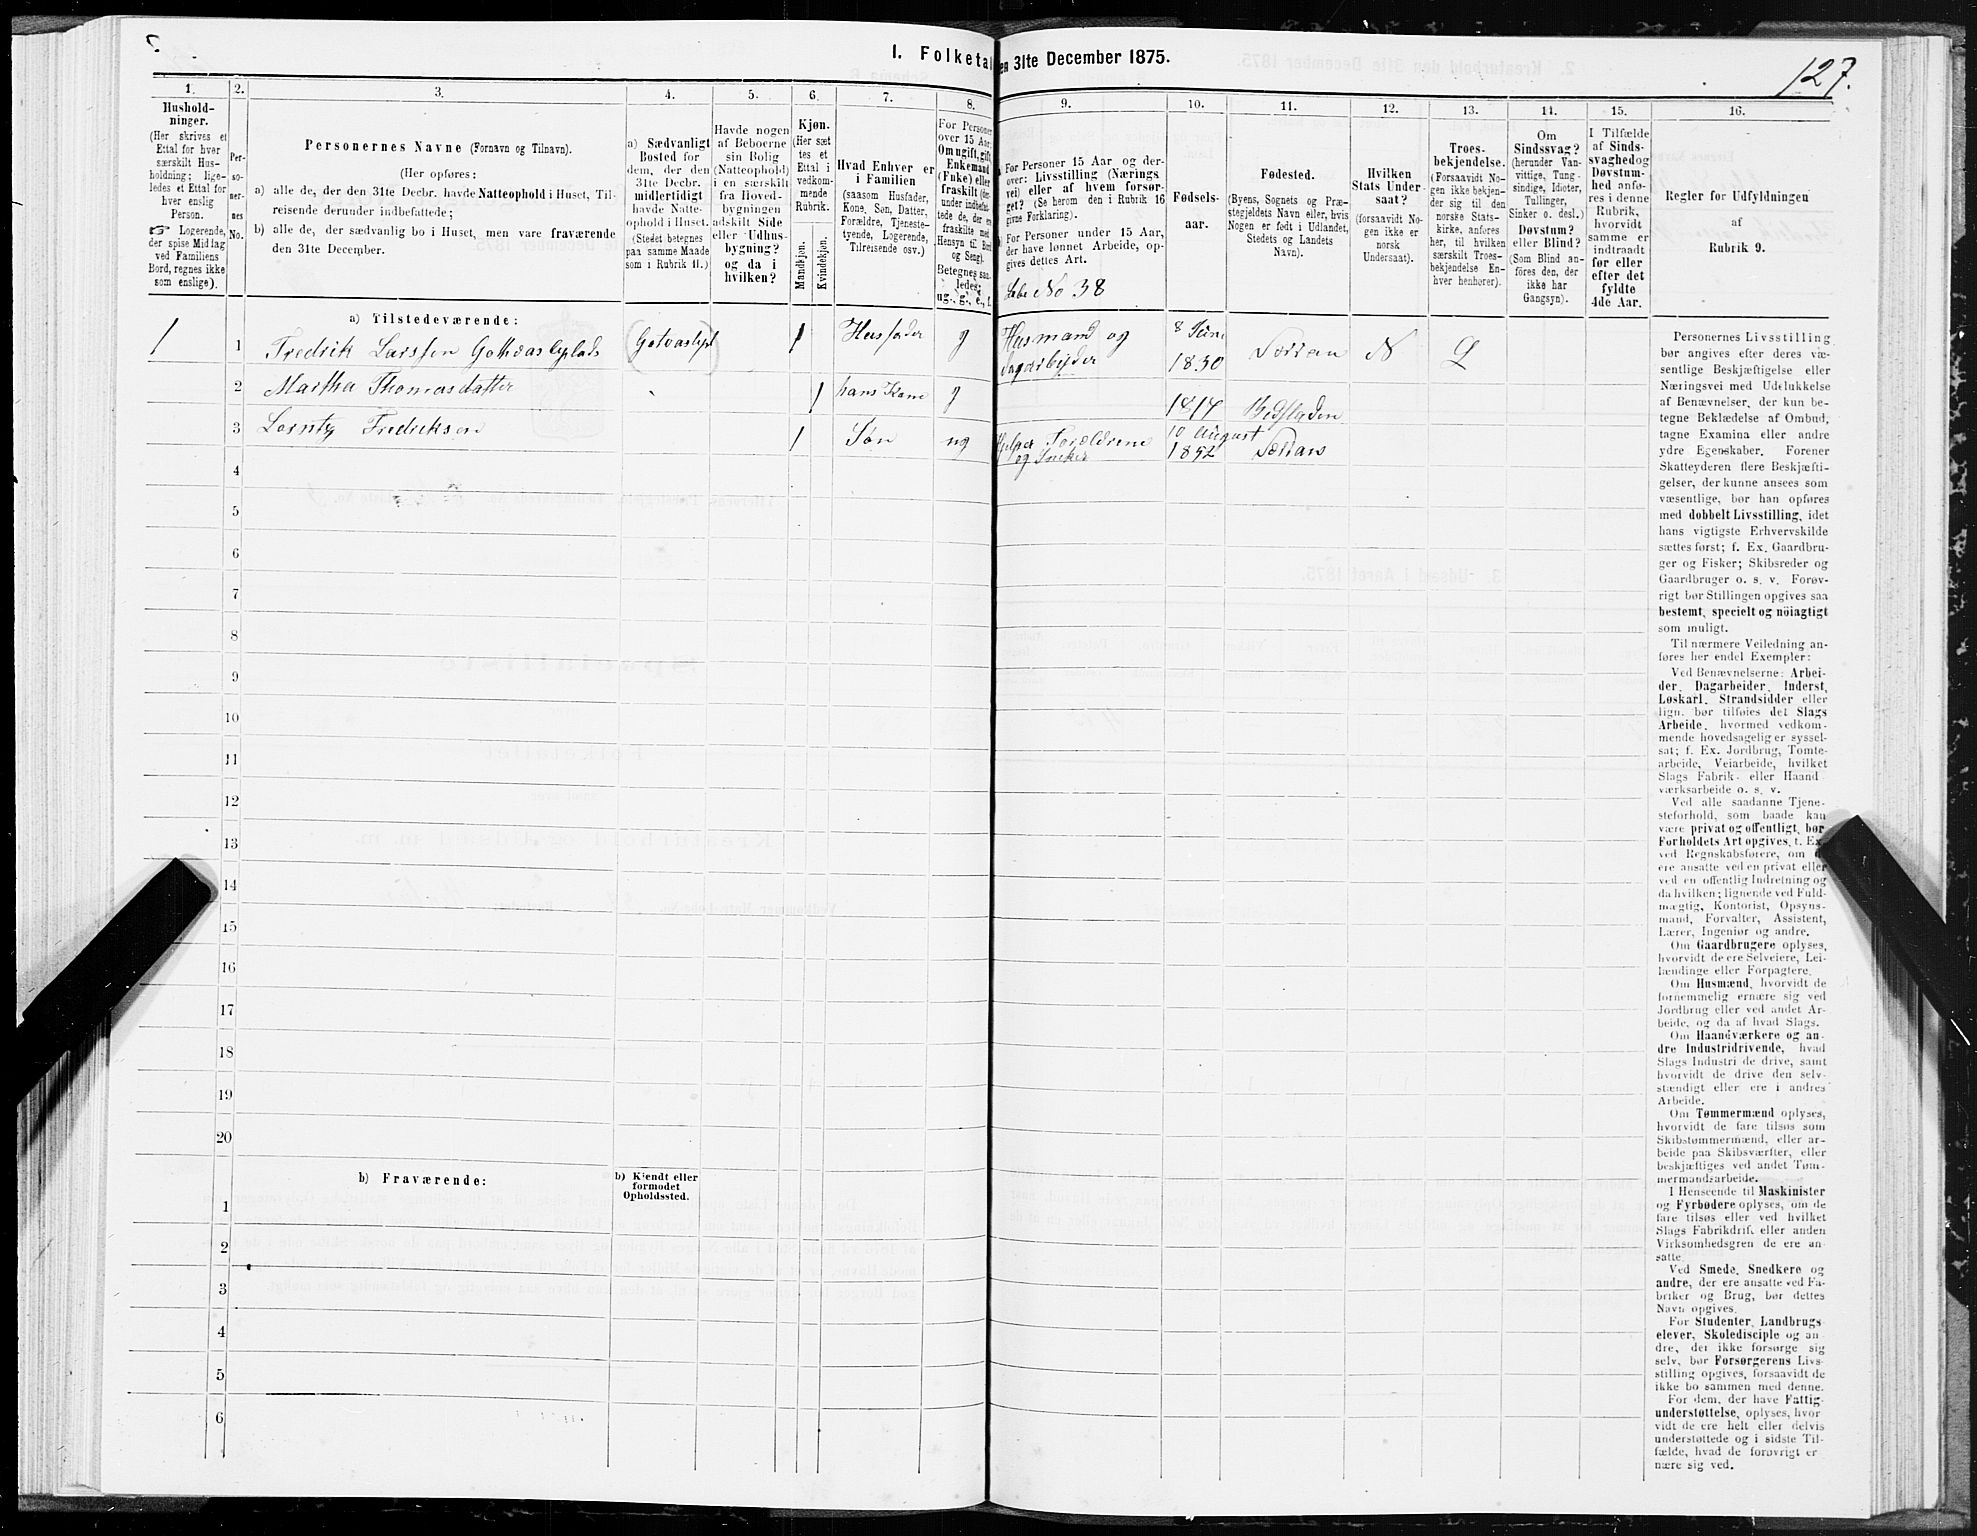 I. Folketal
en 31te December 1875.
127.
1.
Hushold-
ninger.
(Her skrives et
Ettal for hver
særskilt Hus-
holdning; lige-
ledes et Ettal for
hver enslig
Person.
☞ Logerende,
der spise Middag
ved Familiens
Bord, regnes ikke
som enslige).
2.
Per-
so-
ner-
nes
No.
3.
Personernes Navne (Fornavn og Tilnavn).
(Her opføres:
a) alle de, der den 31te Decbr. havde Natteophold i Huset, Til-
reisende derunder indbefattede;
b) alle de, der sædvanlig bo i Huset, men vare fraværende
den 31te December.
4.
a) Sædvanligt
Bosted for
dem, der den
31te Decbr.
midlertidigt
havde Natte-
ophold i Huset.
(Stedet betegnes
paa samme Maade
som i Rubrik 11.)
5.
Havde nogen
af Beboerne
sin Bolig
(Natteophold)
i en særskilt
fra Hoved-
bygningen
adskilt Side
eller Udhus-
bygning?
og da i
hvilken?
6.
Kjøn.
(Her sæt-
tes et
Ettal i
vedkom-
mende
Rubrik.
Mandkjøn.
Kvindekjøn.
7.
Hvad Enhver er
i Familien
(saasom Husfader,
Kone, Søn, Datter,
Forældre, Tjeneste-
tyende, Logerende,
Tilreisende osv.)
8.
For Personer
over 15 Aar:
Om ugift, gift,
Enkemand
(Enke) eller
fraskilt
og Seng).
Betegnes saa-
ledes:
ug., g., e., f.
9.
For Personer 15 Aar og der-
over: Livsstilling (Nærings
vei) eller af hvem forsør-
get? (Se herom den i Rubrik 16
givne Forklaring).
For Personer under 15 Aar,
der have lønnet Arbeide, op-
gives dettes Art.
No 38
10.
Fødsels-
aar.
11.
Fødested.
(Byens, Sognets og Præ-
stegjeldets Navn eller, hvis
Nogen er født i Udlandet,
Stedets og Landets
Navn).
12.
Hvilken
Stats Under-
saat?
(forsaavidt No-
gen ikke er
norsk
Undersaat).
13.
Troes-
bekjendelse.
(Forsaavidt No-
gen ikke bekjen-
der sig til den
norske Stats-
kirke, anføres
her, til hvilken
særskilt Troes-
bekjendelse En-
hver henhører).
14.
Om
Sindssvag?
(herunder Van-
vittige, Tung-
sindige, Idioter,
Tullinger,
Sinker o. desl.)
Døvstum?
eller Blind?
(Som Blind an-
føres den, der
ikke har
Gangsyn).
15.
I Tilfælde
af Sinds-
svaghed og
Døvstum-
hed anfø-
res i denne
Rubrik,
hvorvidt
samme er
indtraadt
før eller
efter det
fyldte
4de Aar.
16.
Regler for Udfyldningen
af
Rubrik 9.
a) Tilstedeværende:
1 1 Fredrik Larssen 1 Husfader g Husmand og Dagarbeider 8 Juni 1830 N L
2 Martha Thomasdatter 1 hans Kone g 1814
3 Lorntz Fredriksen 1 Søn ug Hjelper Forældrene og Sneker 10 August 1852
4
5
6
7
8
9
10
11
12
13
14
15
16
17
18
19
20
b) Fraværende:
b) Kjendt eller
formodet
Opholdssted.
1
2
3
4
5
6
Personernes Livsstilling
bør angives efter deres væ-
sentlige Beskjæftigelse eller
Næringsvei med Udelukkelse
af Benævnelser, der kun be-
tegne Beklædelse af Ombud,
tagne Examina eller andre
ydre Egenskaber. Forener
Skatteyderen flere Beskjæfti-
gelser, der kunne ansees som
væsentlige, bør han opføres
med dobbelt Livsstilling, idet
hans vigtigste Erhvervskilde
sættes først; f. Ex. Gaardbru-
ger og Fisker; Skibsreder og
Gaardbruger o. s. v. Forøv-
rigt bør Stillingen opgives saa
bestemt, specielt og nöiagtigt
som muligt.
Til nærmere Veiledning an-
føres her endel Exempler:
Ved Benævnelserne: Arbei-
der, Dagarbeider, Inderst,
Løskarl, Strandsidder eller
lign. bør tilføies det Slags
Arbeide, hvormed vedkom-
mende hovedsagelig er syssel-
sat; f. Ex. Jordbrug, Tomte-
arbeide, Veiarbeide, hvilket
Slags Fabrik- eller Haand-
værksarbeide o. s. v.
Ved alle saadanne Tjene-
steforhold, som baade kan
være privat og offentligt, bør
Forholdets Art opgives, f. Ex.
ved Regnskabsførere, om de
ere ansatte ved en privat eller
ved en offentlig Indretning og
da hvilken; lignende ved Fuld-
mægtig, Kontorist, Opsyns-
mand, Forvalter, Assistent,
Lærer, Ingeniør og andre.
Om Gaardbrugere oplyses,
hvorvidt de ere Selveiere, Lei-
lændinge eller Forpagtere.
Om Husmænd, hvorvidt de
fornemmelig ernære sig ved
Jordbrug eller ved andet Ar-
beide, og da af hvad Slags.
Om Haandværkere og an-
dre Industridrivende, hvad
Slags Industri de drive, samt
hvorvidt de drive den selv-
stændigt eller ere i andres
Arbeide.
Om Tømmermænd oplyses,
hvorvidt de fare tilsøs som
Skibstømmermænd, eller ar-
beide paa Skibsværfter, eller
beskjæftiges ved andet Tøm-
mermandsarbeide.
I Henseende til Maskinister
og Fyrbødere oplyses, om de
fare tilsøs eller ved hvilket
Slags Fabrikdrift eller anden
Virksomhedsgren de ere an-
satte.
Ved Smede, Snedkere og
andre, der ere ansatte ved Fa-
briker og Brug, bør dettes
Navn opgives.
For Studenter, Landbrugs-
elever, Skoledisciple og an-
dre, der ikke forsørge sig
selv, bør Forsørgerens Livs-
stilling opgives, forsaavidt de
ikke bo sammen med denne.
For dem, der have Fattig-
understøttelse, oplyses, hvor-
vidt de ere helt eller delvis
understøttede og i sidste Til-
fælde, hvad de forøvrigt er-
nære sig ved.